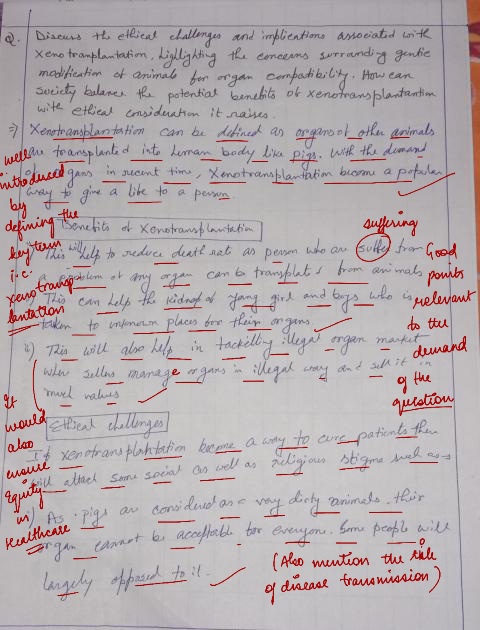 Q. Discuss the ethical challenges and implications associated with
Xenotranplantation, higlighting the concerns surranding gentic
modification of animals for organ compatibility. How can
society balance the potential benefits of xenotransplantantion
with ethical consideration it raises.
⇒) Xenotransplantation can be defined as organs of other animals
are transplanted into human body like pigs. With the demand
of organs in recent time, Xenotransplantation become a popular
way to give a life to a person.
well introduced by defining the key term i.e. xenotransplantation
Benefits of Xenotransplantation
suffering
This will help to reduce death rate as person who are suffer from
a problem of any organ can be transplated from animals
This can help the kidnap of yang girl and boys who is
taken to unknown places for their organs
ii) This will also help in tackelling illegal organ market
wher sellers manage organs in illegal way and sell it in
much values
Good points relevant to the demand of the question
It would also ensure Equity in Healthcare
Ethical challenges
If xenotransplantation become a way to cure patients then
will attack some social as well as religious stigma such as
i) As pigs are considered as a very dirty animals. their
organ cannot be acceptable for everyone. Some people will
largely opposed to it.
(Also mention the risk
of disease transmission)